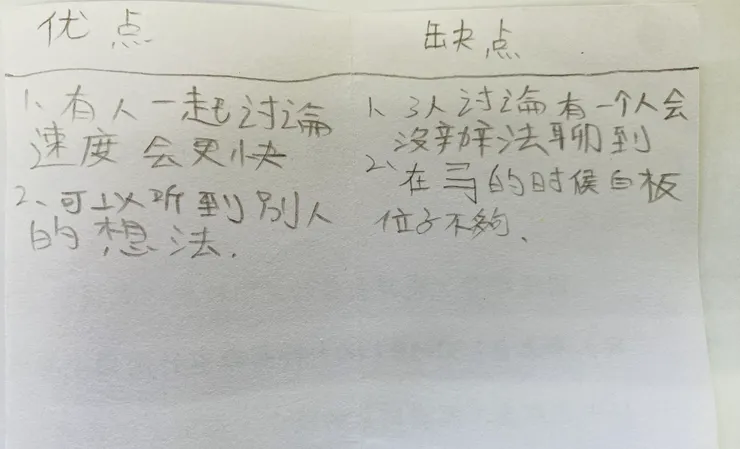 优点
1、有人一起讨论
速度会更快
2、可以听到别人
的想法.
缺点
1、3人讨论有一个人会
没辦法聊到
2、在写的时候白板
位子不夠、